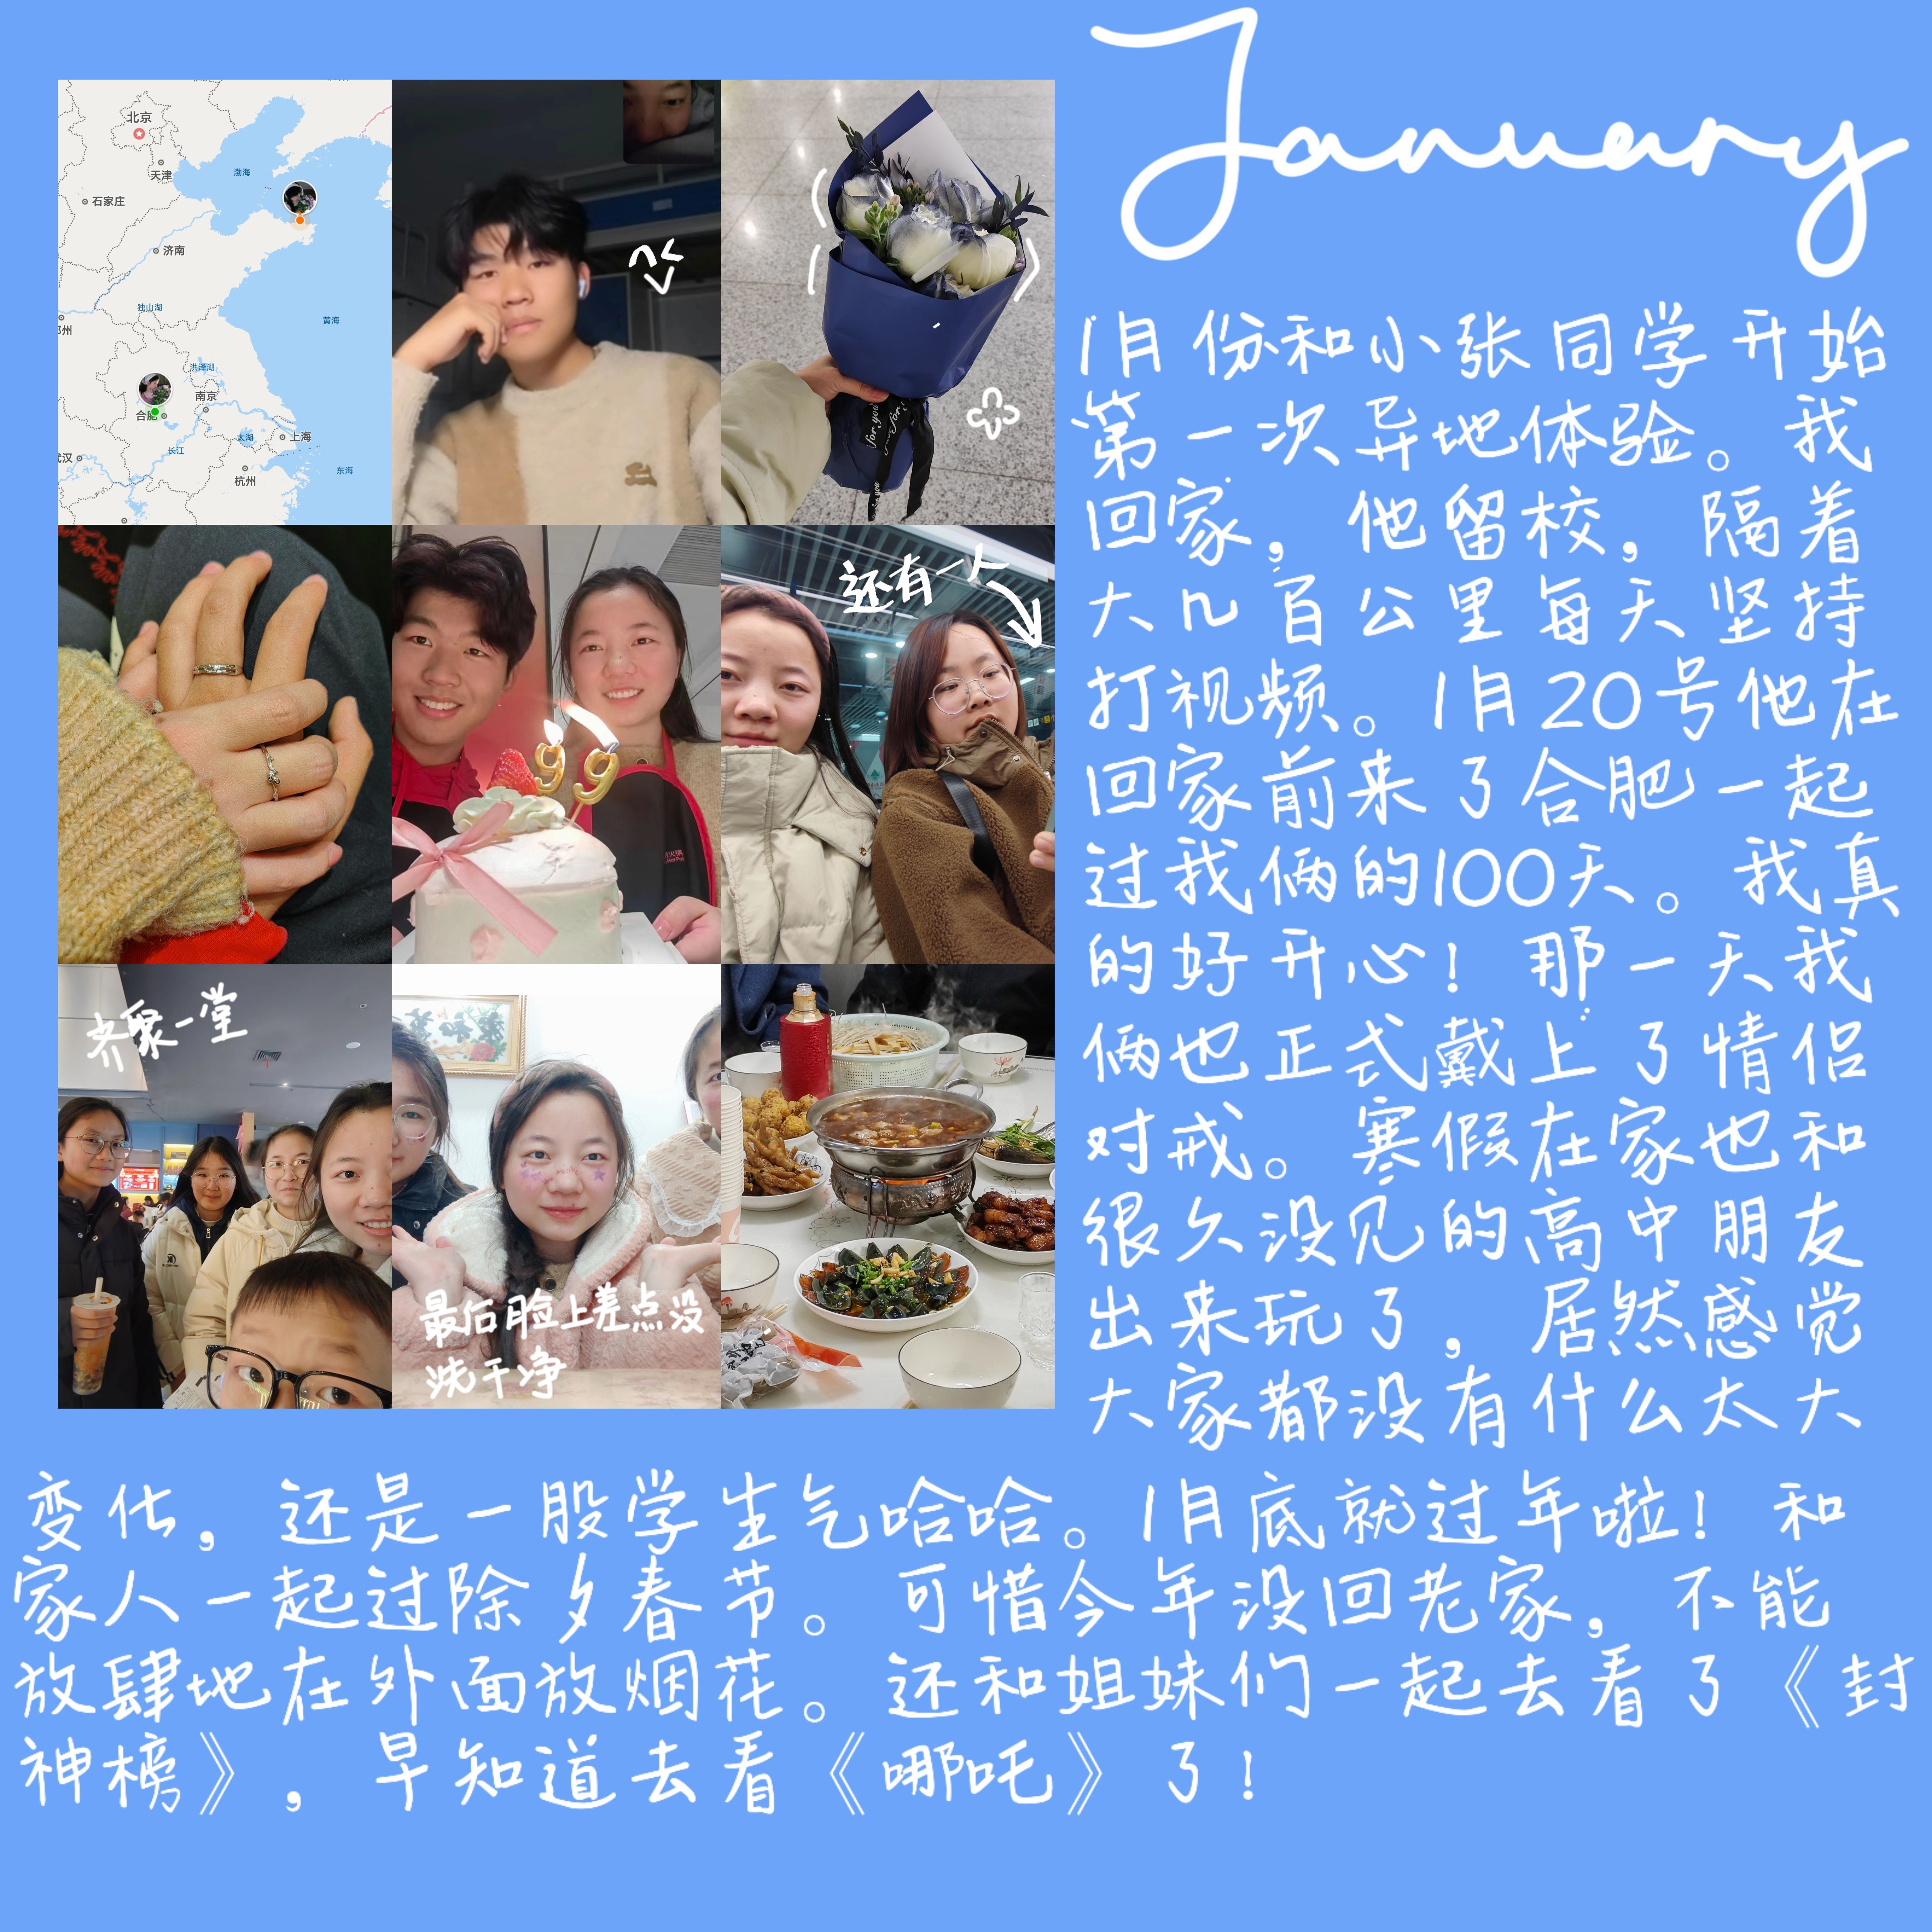 January
北京
天津
渤海
石家庄
济南
独山湖
黄海
州
洪泽湖
南京
合肥
上海
太湖
长江
汉
杭州
东海
for you
for
还有一人
99
火锅
齐聚一堂
最后脸上差点没
洗干净
1月份和小张同学开始
第一次异地体验。我
回家，他留校，隔着
大几百公里每天坚持
打视频。1月20号他在
回家前来了合肥一起
过我俩的100天。我真
的好开心！那一天我
俩也正式戴上了情侣
对戒。寒假在家也和
很久没见的高中朋友
出来玩了，居然感觉
大家都没有什么太大
变化，还是一股学生气哈哈。1月底就过年啦！和
家人一起过除夕春节。可惜今年没回老家，不能
放肆地在外面放烟花。还和姐妹们一起去看了《封
神榜》，早知道去看《哪吒》了！